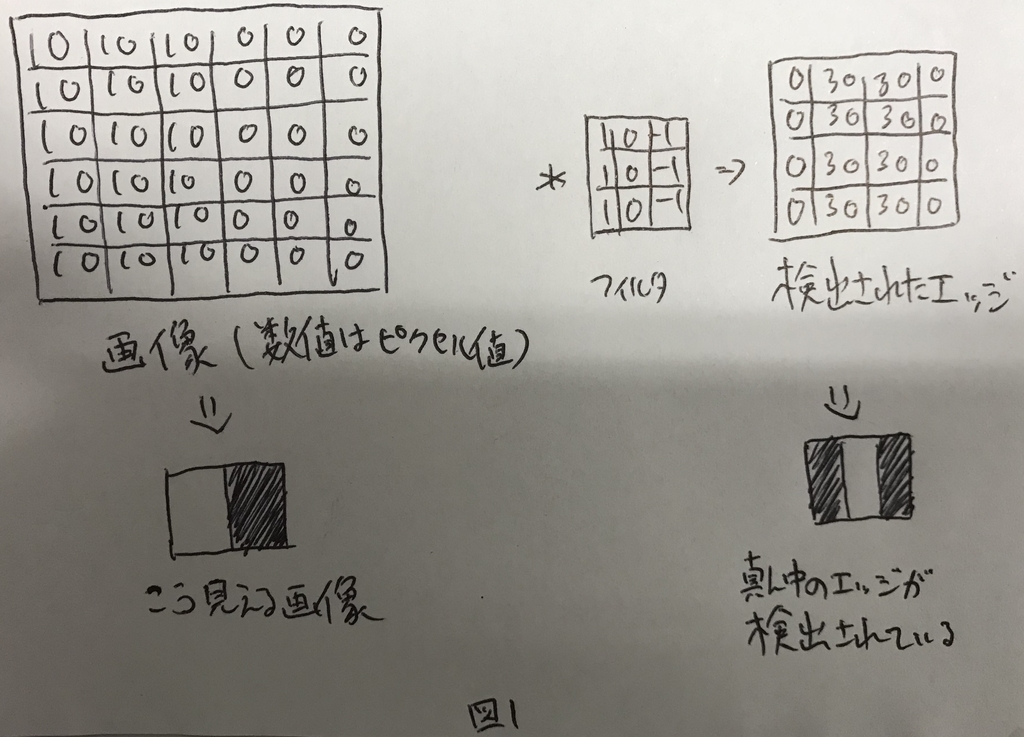 10 10 10 0 0 0
10 10 10 0 0 0
10 10 10 0 0 0
10 10 10 0 0 0
10 10 10 0 0 0
10 10 10 0 0 0
画像(数値はピクセル値)
*
1 0 -1
1 0 -1
1 0 -1
フィルタ
⇒
0 30 30 0
0 30 30 0
0 30 30 0
0 30 30 0
検出されたエッジ
こう見える画像
真ん中のエッジが
検出されている
図1